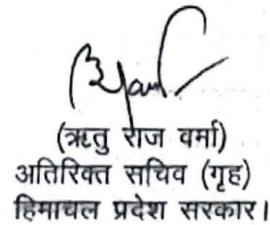 (ऋतु राज वर्मा)
अतिरिक्त सचिव (गृह)
हिमाचल प्रदेश सरकार।